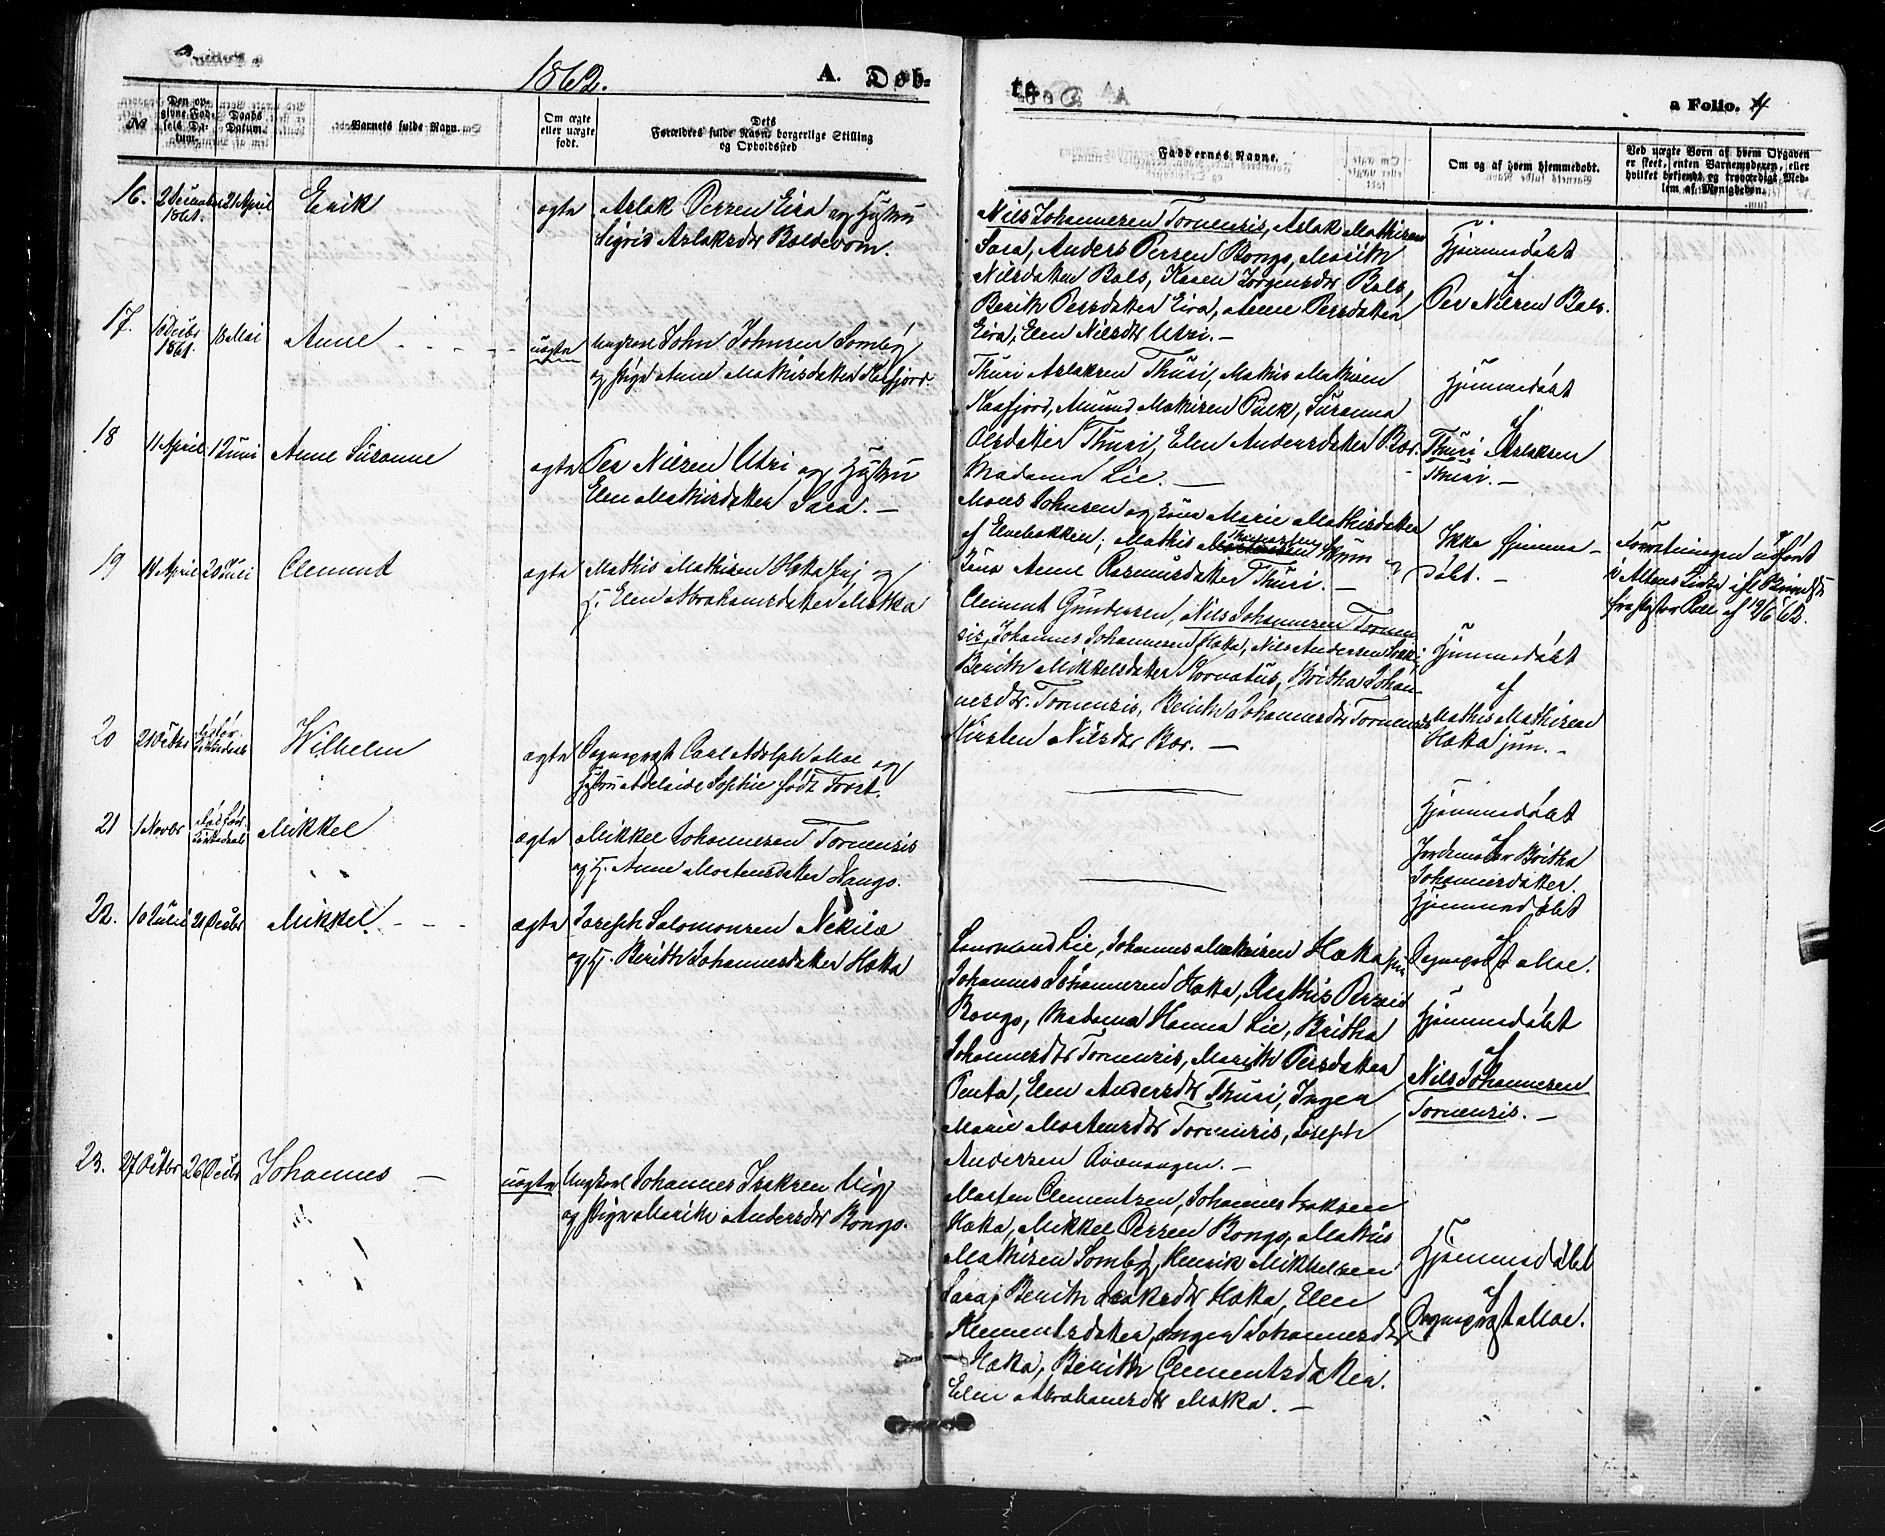 1862.
A. Døb-
te.
a Folio. 4
№
Den op-
givne Fød-
sels Da-
tum.
Daabs
Datum.
Barnets fulde Navn.
Om ægte
eller uægte
født.
Dets
Forældres fulde Navn borgerlige Stilling
og Opholdssted
Faddernes Navne.
Om og af hvem hjemmedøbt.
Ved uægte Børn af hvem Opgaven
er skeet, enten Barnemoderen, eller
hvilket bekjendt og troværdigt Med-
lem af Menigheden.
16.
1861.
21 April
Erik
ægte
Aslak Persen Eira og Hustru
Sigris Aslaksdtr Baldevom.
Nils Johannesen Tornensis, Aslak Mathisen
Sara, Anders Persen Bongo, Marith
Nilsdatter Bals, Karen Jörgensdtr Bals,
Berith Persdatter Eira, Anne Persdatter
Eira, Elen Nilsdtr Utri. —
Hjemmedøbt
af
Per Nilsen Bals.
17.
1861.
18 Mai
Anne
uægte
Ungkarl John Johnsen Somby
og Pige Anne Mathisdatter Kaafjord.
Thuri Aslaksen Thuri, Mathis Mathisen
Kaafjord, Amund Mathisen Pulk, Susanna
Olsdatter Thuri, Elen Andersdatter Bær.
Madame Lie. —
Hjemmedøbt
af
Thuri Aslaksen
Thuri. —
18
11 April
1 Juni
Anne Susanne
ægte
Per Nilsen Utri og Hustru
Elen Mathisdatter Sara. —
Mons Johnsen og Kone Marie Mathisdatter
af Elvebakken; Mathis Skum og
Kone Anne Rasmusdatter Thuri. —
Ikke hjemme-
døbt. —
Forretningen udført
i Altens
af 19/6 62.
19
14 April
20 Juli
Clement
ægte
Mathis Mathisen Hætta jnj og
H. Elen Abrahamsdatter Mætka
Clement Gundersen, Nils Johannesen Tornen
sis, Johannes Johannesen Hætta, Nils Andersen
Berith Mikkelsdatter Kornatus, Britha Johan-
nesdtr. Tornensis, Berith Johannesdtr Tornensis
Kirsten Nilsdtr Bær. —
Hjemmedøbt
af
Mathis Mathisen
Hætta jun. —
20
Wilhelm
ægte
Sognepræst Carl Adolph Moe og
Hustru Adelaide Sophie født Trost.
Hjemmedøbt
af
21
1 Novbr
Mikkel
ægte
Mikkel Johannesen Tornensis
og H. Anne Mortensdatter Nango.
Jordemoder Britha
Johannesdatter.
22.
10 Julii
21 Decbr
Mikkel
ægte
Joseph Salomonsen Nekilæ
og H. Berith Johannesdatter Hætta
Hjemmedøbt
af
Sognepræst Moe.
Lensmand Lie, Johannes Mathisen Hætta jun
Johannes Johannesen Hætta, Mathis Persen
Bongo, Madame Hanna Lie, Britha
Johannesdtr Tornensis, Marith Persdatter
Penta, Elen Andersdtr Thuri, Inger
Marie Mortensdtr Tornensis, Joseph
Andersen Qvænangen. —
Hjemmedøbt
af
Nils Johannesen
Tornensis. —
23.
27 Octbr
26 Decbr
Johannes —
uægte
Ungkarl Johannes Isaksen Utsi
og Pige Marith Andersdtr Bongo.
Morten Clementsen, Johannes Isaksen
Hætta, Mikkel Persen Bongo, Mathis
Mathisen Somby, Henrik Mikkelsen
Sara, Berith Isaksdtr Hætta, Elen
Klementsdatter, Inger Johannesdtr
Hætta, Berith Clementsdatter.
Elen Abrahamsdtr Mætka. —
Hjemmedøbt
af
Sognepræst Moe.